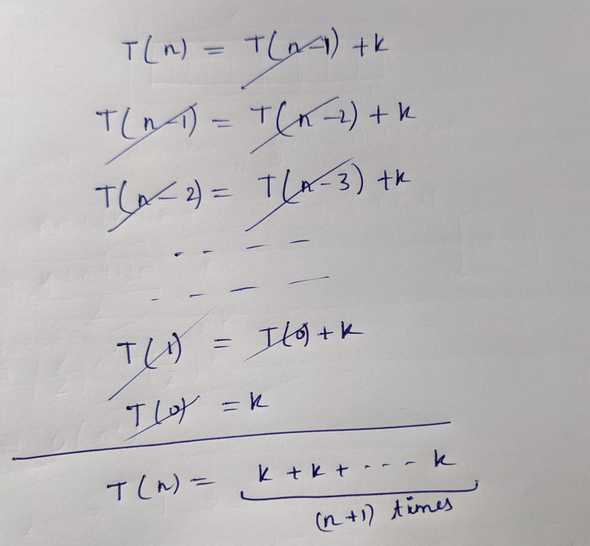 T(n) = T(n-1) + k
T(n-1) = T(n-2) + k
T(n-2) = T(n-3) + k
. . - -
. - - -
T(1) = T(0) + k
T(0) = k
T(n) = k + k + - - - k
(n+1) times